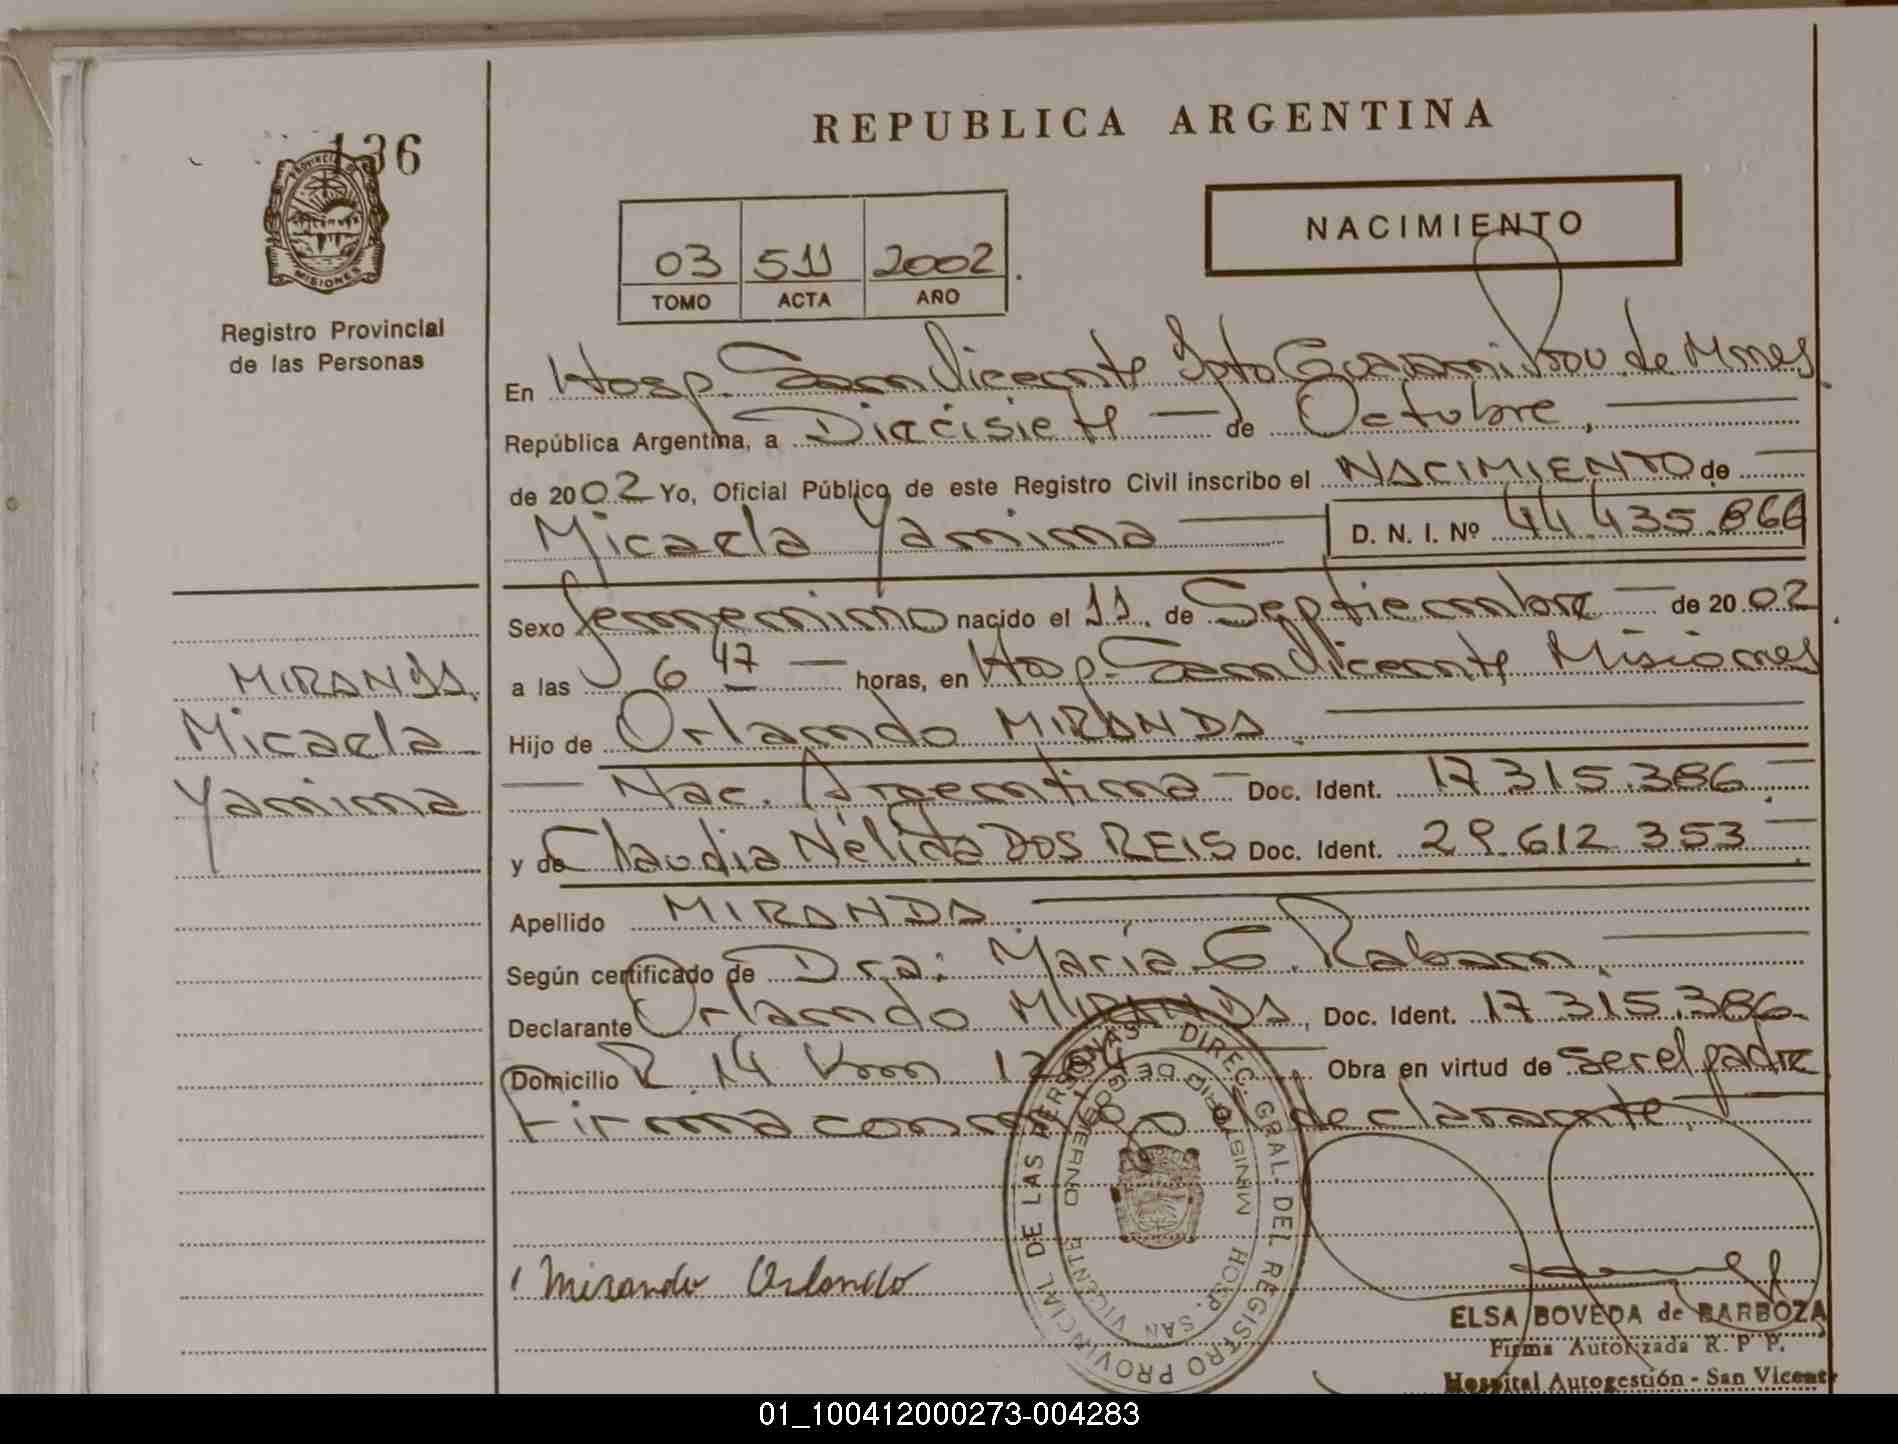 136
PROVINCIA DE
MISIONES
Registro Provincial
de las Personas
REPUBLICA ARGENTINA
03 511 2002
TOMO ACTA AÑO
NACIMIENTO
En Hosp. San Vicente Dpto Guarani Prov. de Mnes
República Argentina, a Diecisiete de Octubre,
de 2002 Yo, Oficial Público de este Registro Civil inscribo el NACIMIENTO de
Micaela Yanina D. N. I. Nº 44.435.866
Sexo femenino nacido el 11 de Septiembre de 2002
a las 6 47 horas, en Hosp. San Vicente Misiones
Hijo de Orlando MIRANDA
Nac. Argentina Doc. Ident. 17.315.386
y de Claudia Nélida DOS REIS Doc. Ident. 29.612.353
Apellido MIRANDA
Según certificado de Dra: María G. Raban
Declarante Orlando MIRANDA, Doc. Ident. 17.315.386
Domicilio R. 14 Km Obra en virtud de ser el padre
Firma conmigo el declarante
MIRANDA
Micaela
Yanina
Miranda Orlando
DIREC. GRAL. DEL REGISTRO PROVINCIAL DE LAS PERSONAS
MINISTERIO DE GOBIERNO
HOSP. SAN VICENTE
ELSA BOVEDA de BARBOZA
Firma Autorizada R. P P.
Hospital Autogestión - San Vicente
01_100412000273-004283